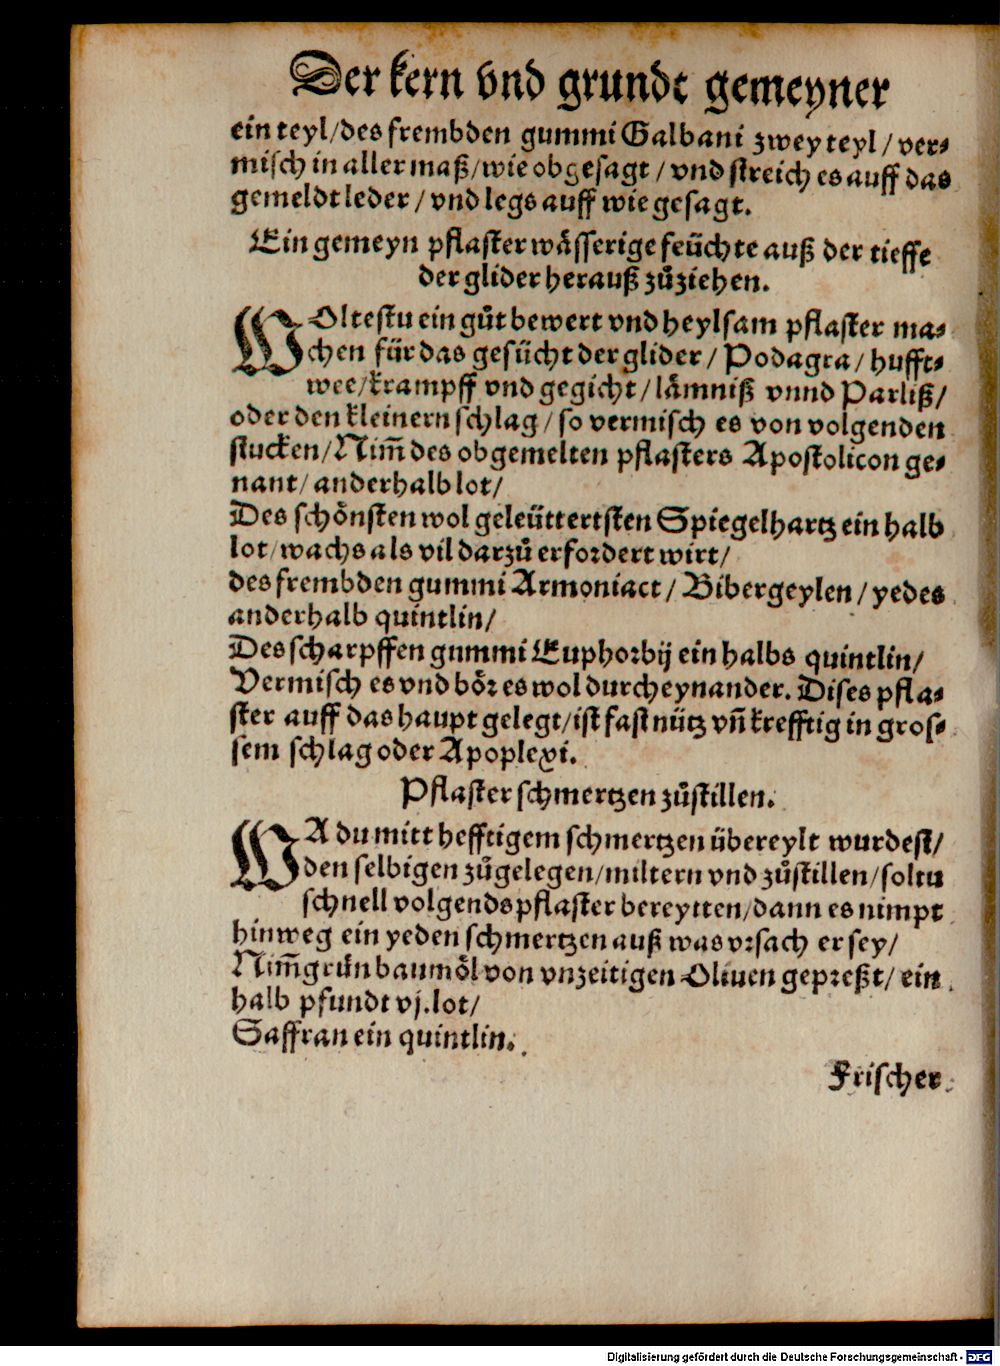 Der kern vnd grundt gemeyner
ein teyl/des frembden gummi Galbani zwey teyl/ver⸗
misch in aller maß/wie obgesagt/vnd streich es auff das
gemeldt leder/vnd legs auff wie gesagt.
Ein gemeyn pflaster wåsserige feüchte auß der tieffe
der glider herauß zůziehen.
WOltestu ein gůt bewert vnd heylsam pflaster ma⸗
chen für das gesücht der glider/Podagra/hufft⸗
wee/krampff vnd gegicht/låmniß vnnd Parliß/
oder den kleinern schlag/so vermisch es von volgenden
stucken/Nim̃ des obgemelten pflasters Apostolicon ge⸗
nant/anderhalb lot/
Des schônsten wol geleüttertsten Spiegelhartz ein halb
lot/wachs als vil darzů erfordert wirt/
des frembden gummi Armoniaci/Bibergeylen/yedes
anderhalb quintlin/
Des scharpffen gummi Euphorbij ein halbs quintlin/
Vermisch es vnd bôr es wol durcheynander. Dises pfla⸗
ster auff das haupt gelegt/ist fast nütz vñ krefftig in gros⸗
sem schlag oder Apoplexi.
Pflaster schmertzen zůstillen.
WA du mitt hefftigem schmertzen übereylt wurdest/
den selbigen zůgelegen/miltern vnd zůstillen/soltu
schnell volgends pflaster bereytten/dann es nimpt
hinweg ein yeden schmertzen auß was vrsach er sey/
Nim̃ grün baumôl von vnzeitigen Oliuen gepreßt/ein
halb pfundt vj.lot/
Saffran ein quintlin.
Frischer
Digitalisierung gefördert durch die Deutsche Forschungsgemeinschaft - DFG